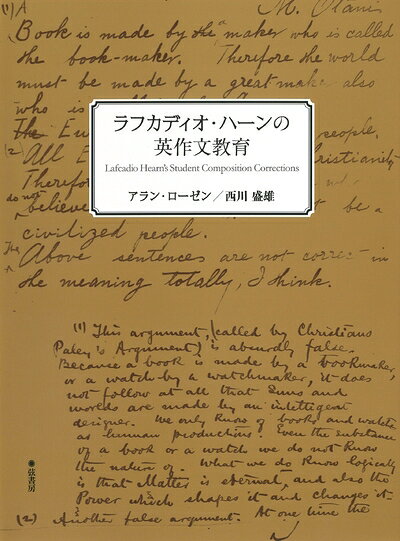 (1) A M. Otani
Book is made by the maker who is called
the book-maker. Therefore the world
must be made by a great make also
who is
The Eu people.
(2) All E Christianity
Therefo
do not believe be a
civilized people.
The Above sentences are not correc in
the meaning totally, I think.
ラフカディオ・ハーンの
英作文教育
Lafcadio Hearn's Student Composition Corrections
アラン・ローゼン/西川 盛雄
(1) This argument, (called by Christians
Paley's Argument) is absurdly false.
Because a book is made by a bookmaker,
or a watch by a watchmaker, it does
not follow at all that Suns and
worlds are made by an intelligent
designer. We only know of books and watches
as human productions. Even the substance
of a book or a watch we do not know
the nature of. What we do know logically
is that Matter is eternal, and also the
Power which shapes it and changes it.
(2) Another false argument. At one time the
弦書房